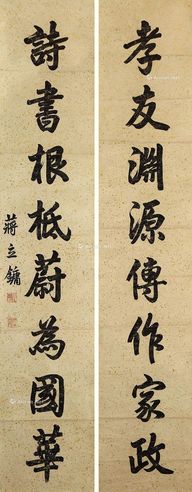 孝友淵源傳作家政
詩書根柢蔚為國華
蔣立鏞